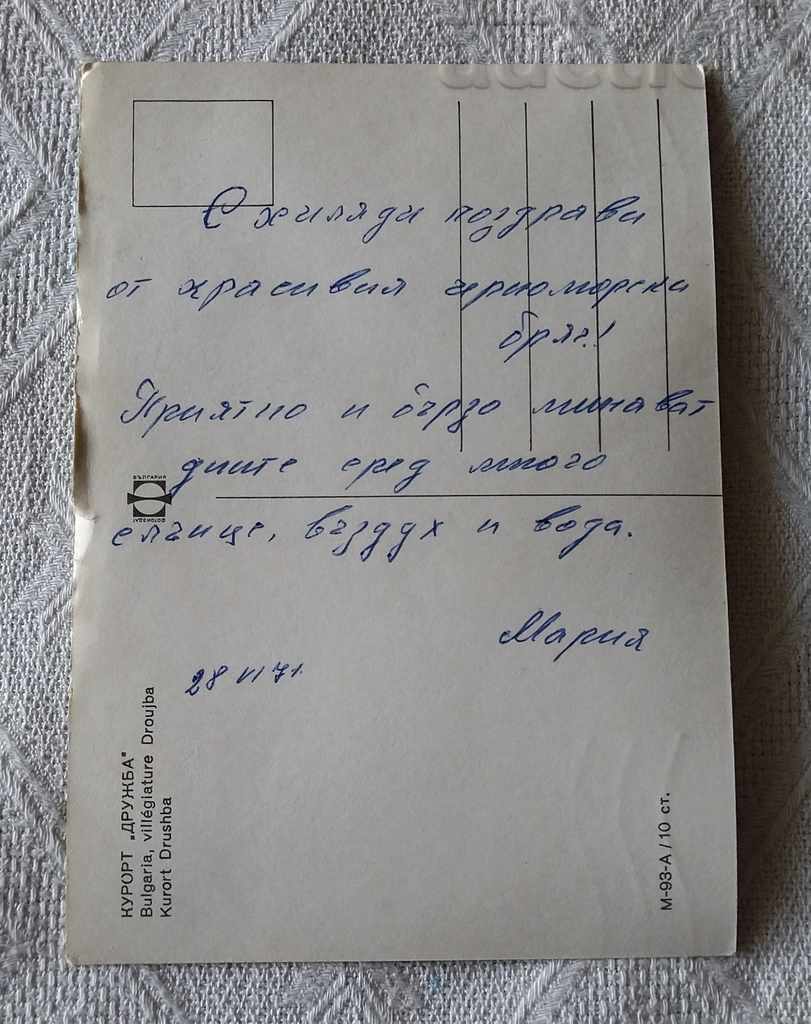 С хиляди поздрави
от красивия черноморски
бряг!
Приятно и бързо минават
дните сред много
слънце, въздух и вода.
Мария
28 VI 71.
БЪЛГАРИЯ
КУРОРТ „ДРУЖБА"
Bulgaria, villégiature Droujba
Kurort Drushba
М-93-А / 10 ст.